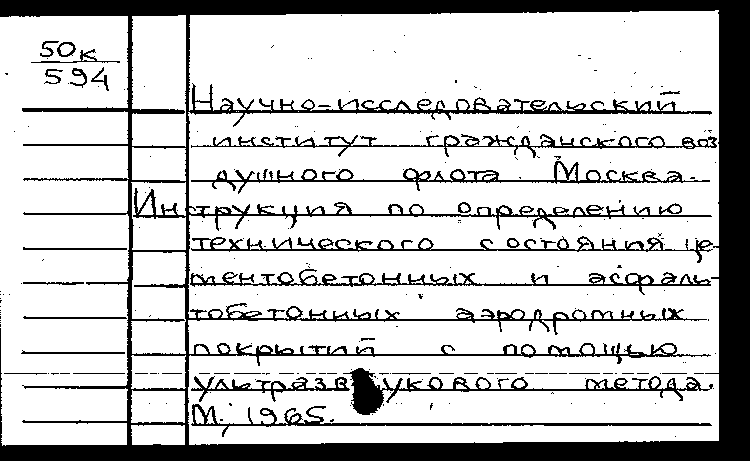 50к
594
Научно-исследовательский
институт гражданского воз
душного флота Москва.
Инструкция по определению
технического состояния це
ментобетонных и асфаль-
тобетонных аэродромных
покрытий с помощью
ультразвукового метода.
М., 1965.